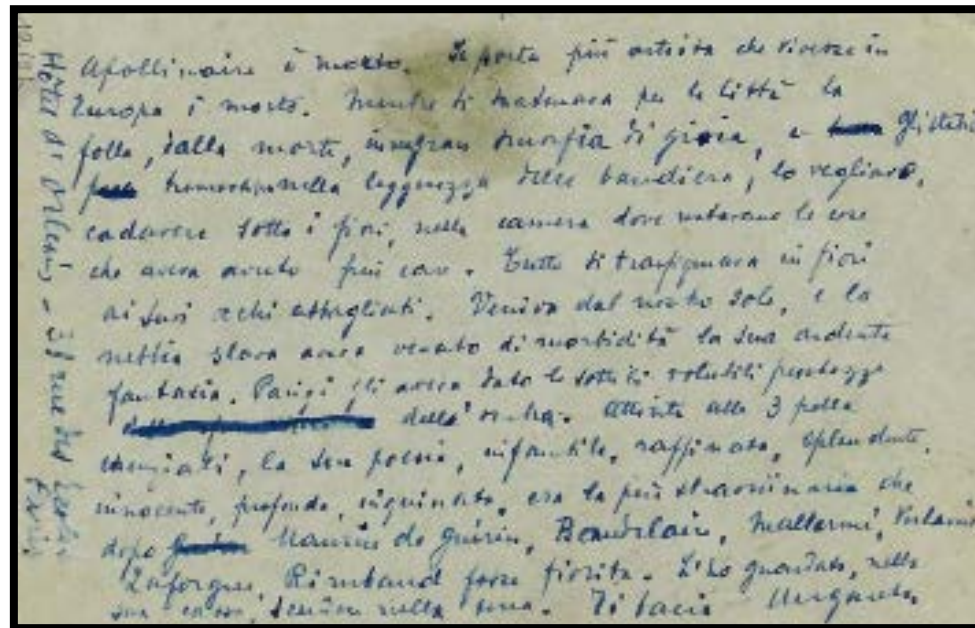 Apollinaire è morto. Il poeta più artista che vivesse in
Europa è morto. Mentre si snodava per le città la
folla, dalla morte, in gran smorfia di gioia, e gli
nella leggerezza delle bandiere, lo vegliavo,
cadavere sotto i fiori, nella camera dove restavano le cose
che aveva avuto più care. Tutto si trasfigurava in fiori
ai suoi occhi abbagliati. Veniva dal nostro sole, e la
nebbia slava aveva venato di morbidità la sua ardente
fantasia. Parigi gli aveva dato le sottili volubili
dell' Attinta alle 3 polle
la sua poesia, infantile, raffinata, splendente,
innocente, profonda, inquinata, era la più straordinaria che
dopo Maurice de Guérin, Beaudelaire, Mallarmé, Verlaine,
Laforgue, Rimbaud fosse fiorita. L'ho guardato, nella
sua cassa, scendere nella terra. Ti bacia Ungaretti
Hôtel d'Orléans - 31 rue des
Paris